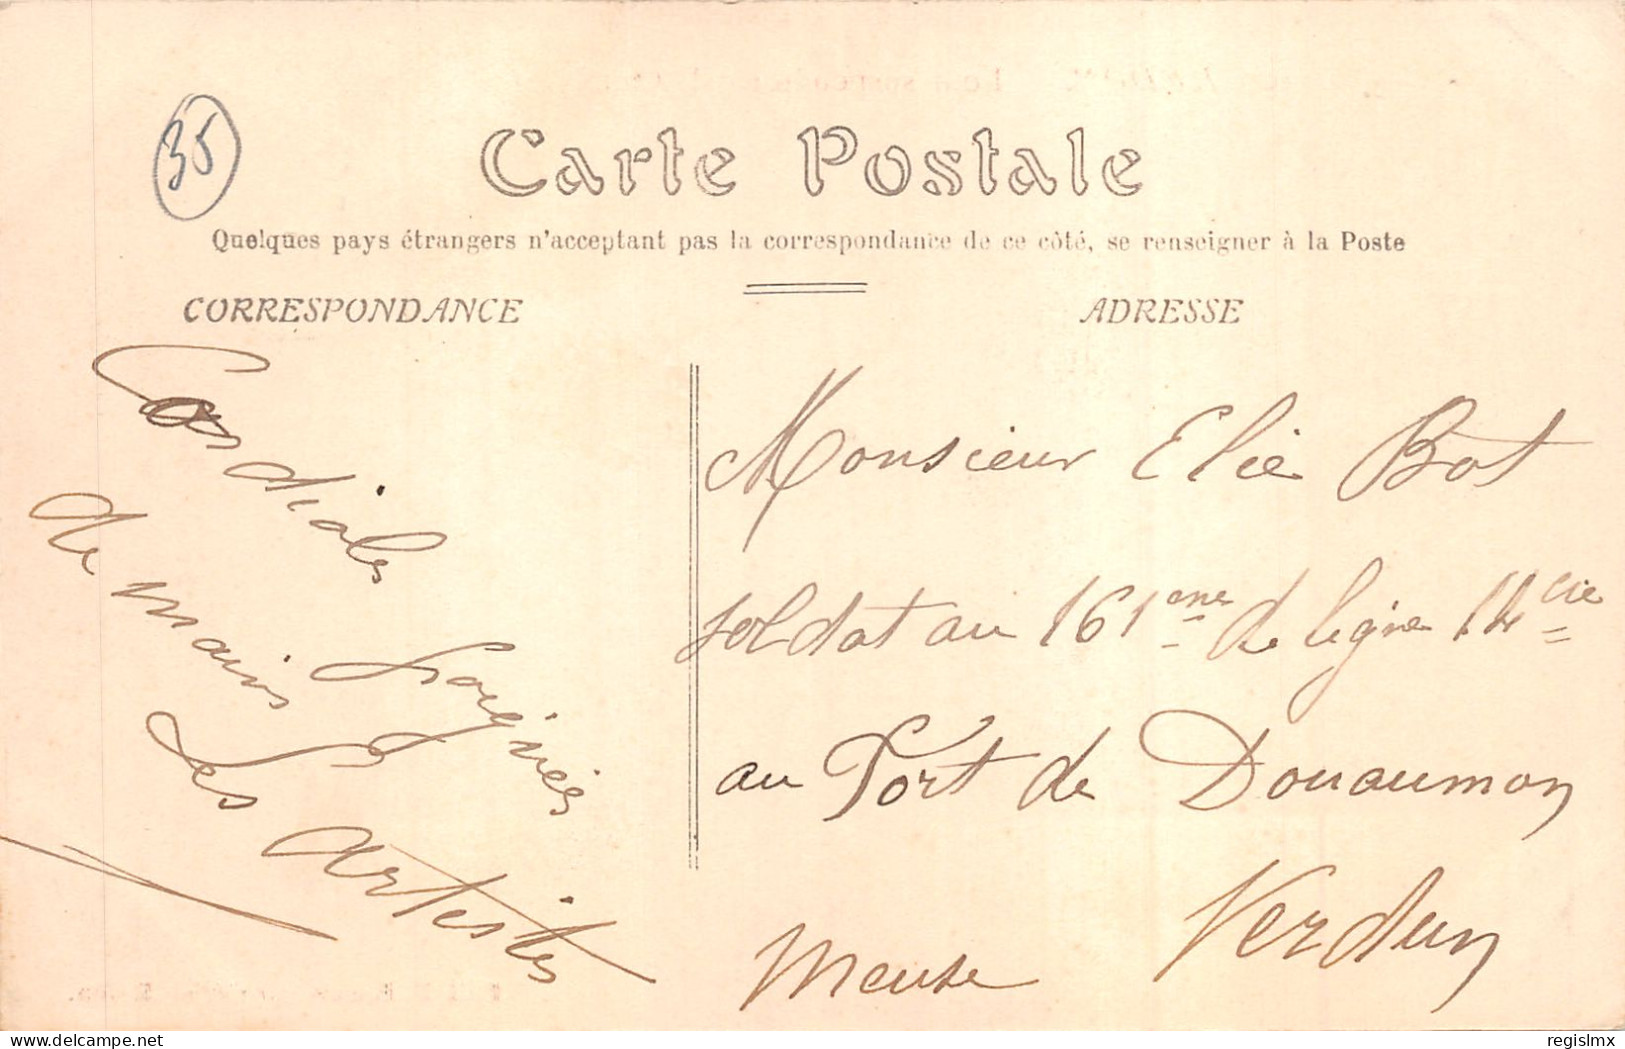 35
Carte Postale
Quelques pays étrangers n'acceptant pas la correspondance de ce côté, se renseigner à la Poste
CORRESPONDANCE
ADRESSE
Cordiales
poignées
de mains
Les Artistes
Monsieur Elie Bot
soldat au 161eme de ligne 14 cie
au Fort de Douaumon
Verdun
Meuse
delcampe.net
regislmx